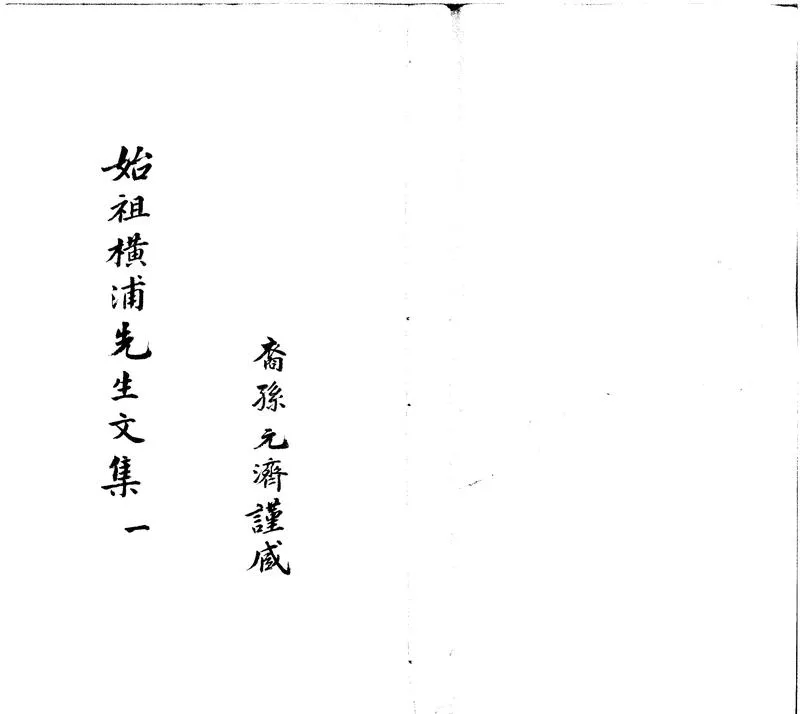 裔孫元濟謹臧
始祖橫浦先生文集 一